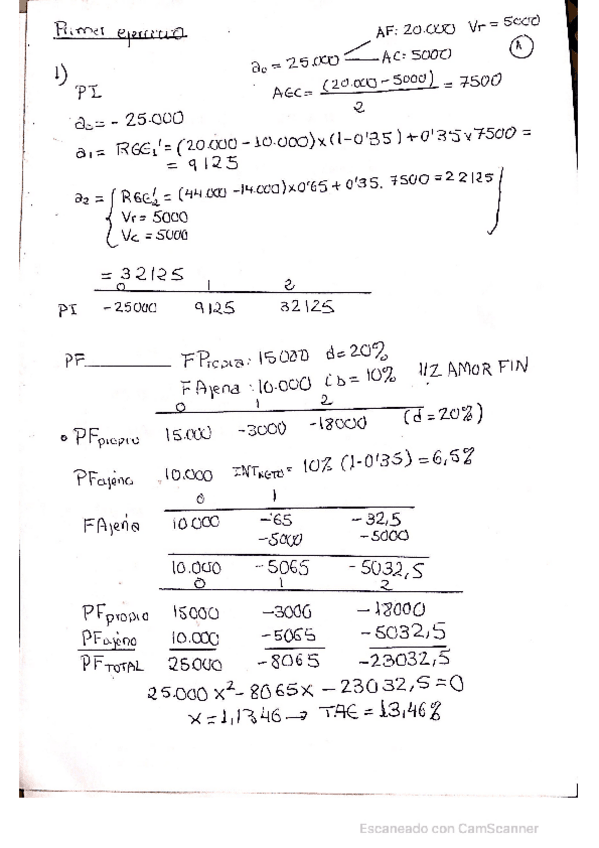 Primer ejercicio
AF: 20.000 Vr = 5000
a₀ = 25.000
AC: 5000
A
1)
PI
AEC = (20.000 - 5000) / 2 = 7500
a₀ = - 25.000
a₁ = RGE₁' = (20.000 - 10.000) x (1-0'35) + 0'35 x 7500 =
= 9125
a₂ = { RGE₂' = (44.000 - 14.000) x 0'65 + 0'35. 7500 = 22125
Vr = 5000
Vc = 5000
= 32125
0 1 2
PI -25000 9125 32125
PF FPropia: 15000 d = 20%
FAjena: 10.000 ib = 10% 1/2 AMOR FIN
0 1 2
• PFpropio 15.000 -3000 -18000 (d = 20%)
PFajeno 10.000 INTNETO = 10% (1-0'35) = 6,5%
0 1
FAjena 10.000 -65 -32,5
-5000 -5000
10.000 -5065 -5032,5
0 1 2
PFpropio 15000 -3000 -18000
PFajeno 10.000 -5065 -5032,5
PFTOTAL 25000 -8065 -23032,5
25.000 x² - 8065x - 23032,5 = 0
x = 1,1346 → TAE = 13,46%
Escaneado con CamScanner